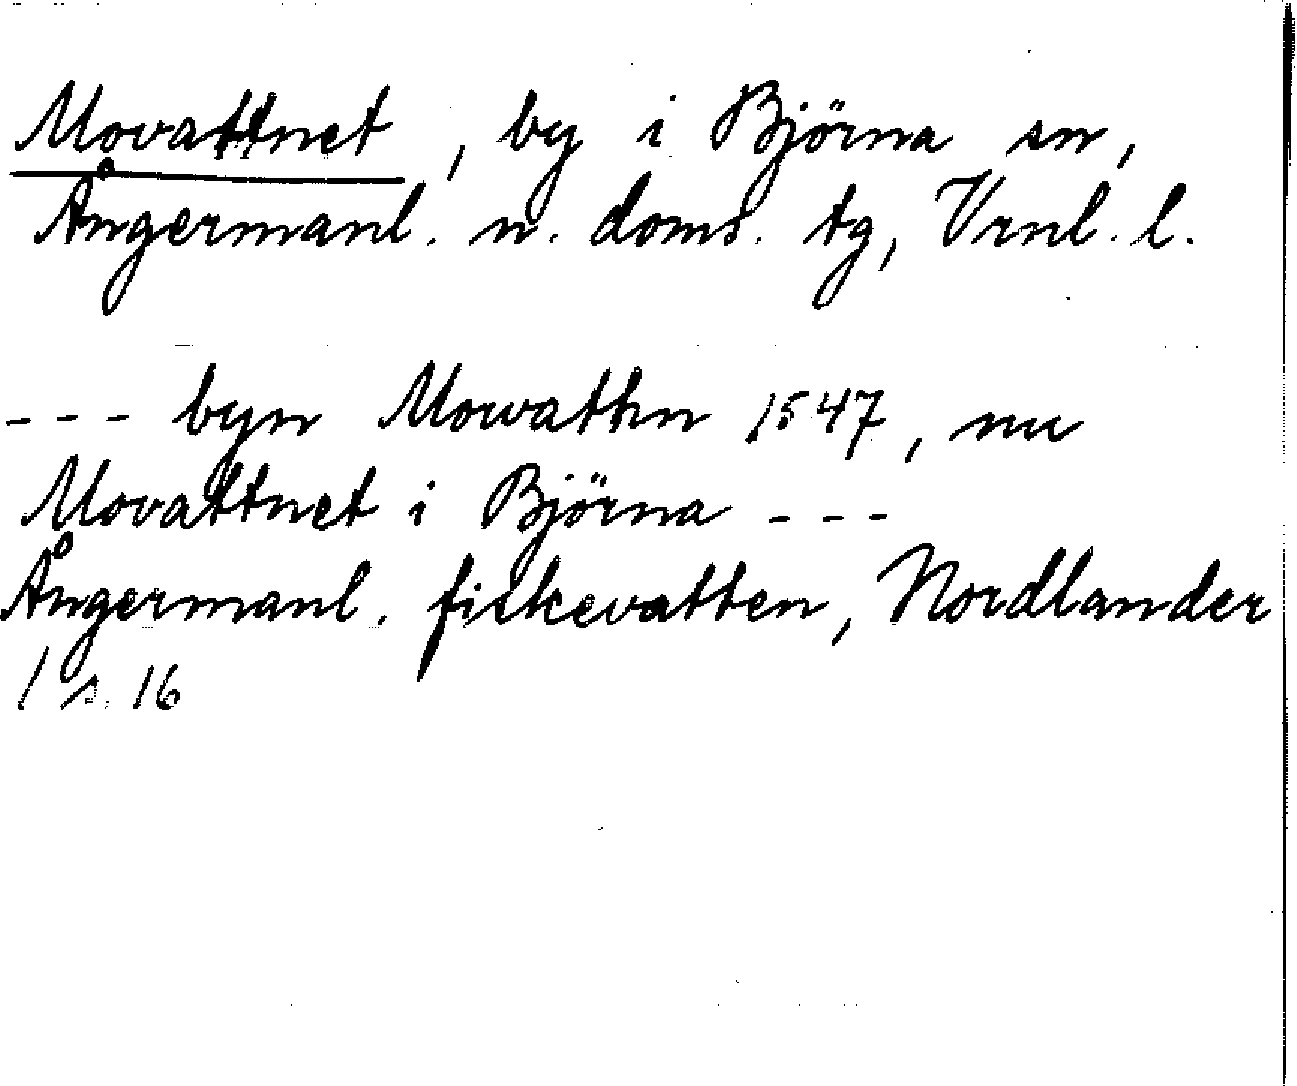 Movattnet, by i Björna sn,
Ångermanl. n. doms. tg, Vrnl. l.
--- byn Mowathn 1547, nu
Movattnet i Björna ---
Ångermanl. fiskevatten, Nordlander
/ s. 16